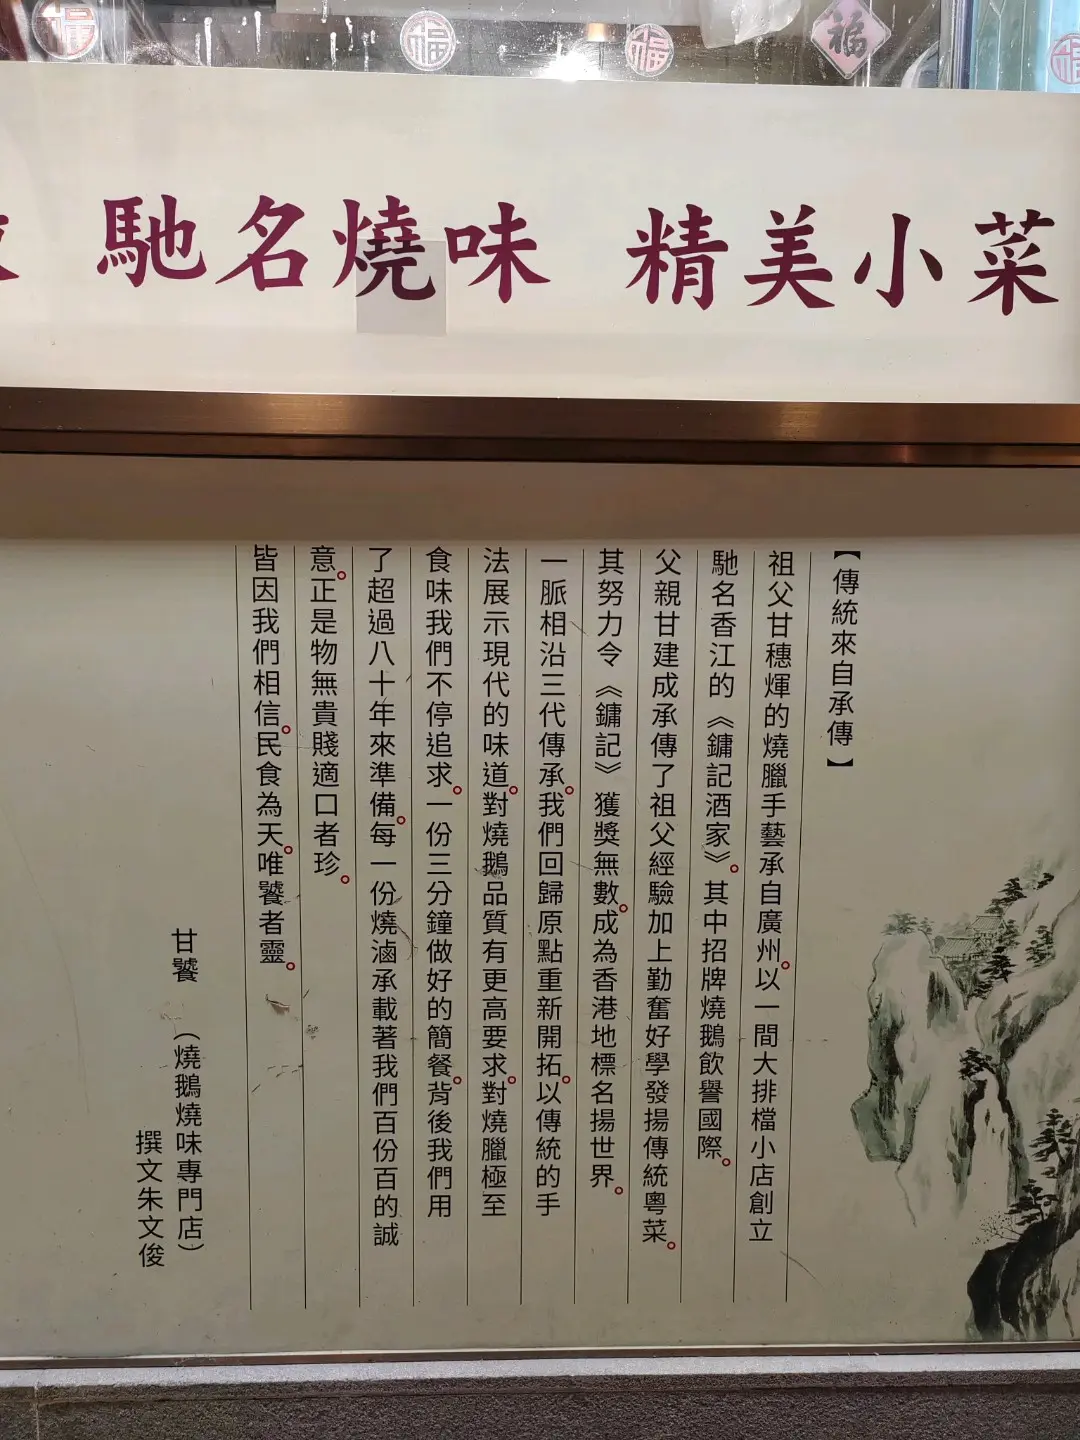 福 福 福 福 福
馳名燒味 精美小菜
【傳統來自承傳】
祖父甘穗煇的燒臘手藝承自廣州。以一間大排檔小店創立
馳名香江的《鏞記酒家》。其中招牌燒鵝飲譽國際。
父親甘建成承傳了祖父經驗加上勤奮好學發揚傳統粵菜。
其努力令《鏞記》獲獎無數。成為香港地標名揚世界。
一脈相沿三代傳承。我們回歸原點重新開拓。以傳統的手
法展示現代的味道。對燒鵝品質有更高要求。對燒臘極至
食味我們不停追求。一份三分鐘做好的簡餐。背後我們用
了超過八十年來準備。每一份燒滷承載著我們百份百的誠
意。正是物無貴賤適口者珍。
皆因我們相信。民食為天。唯饕者靈。
甘饕 （燒鵝燒味專門店）
撰文朱文俊